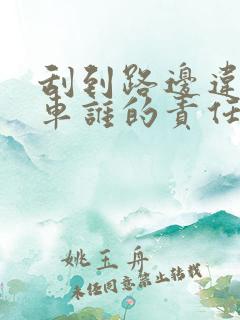 刮到路邊違
車誰的責任
姚玉舟
未任同意禁止轉載